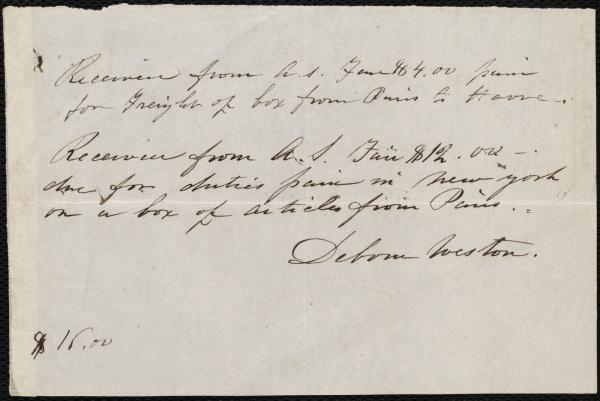 Received from A. S. Fair $4.00 paid
for Freight of box from Paris to Havre.
Received from A. S. Fair $12.00 -
due for duties paid in new york
on a box of articles from Paris.
Debora Weston.
$ 16.00